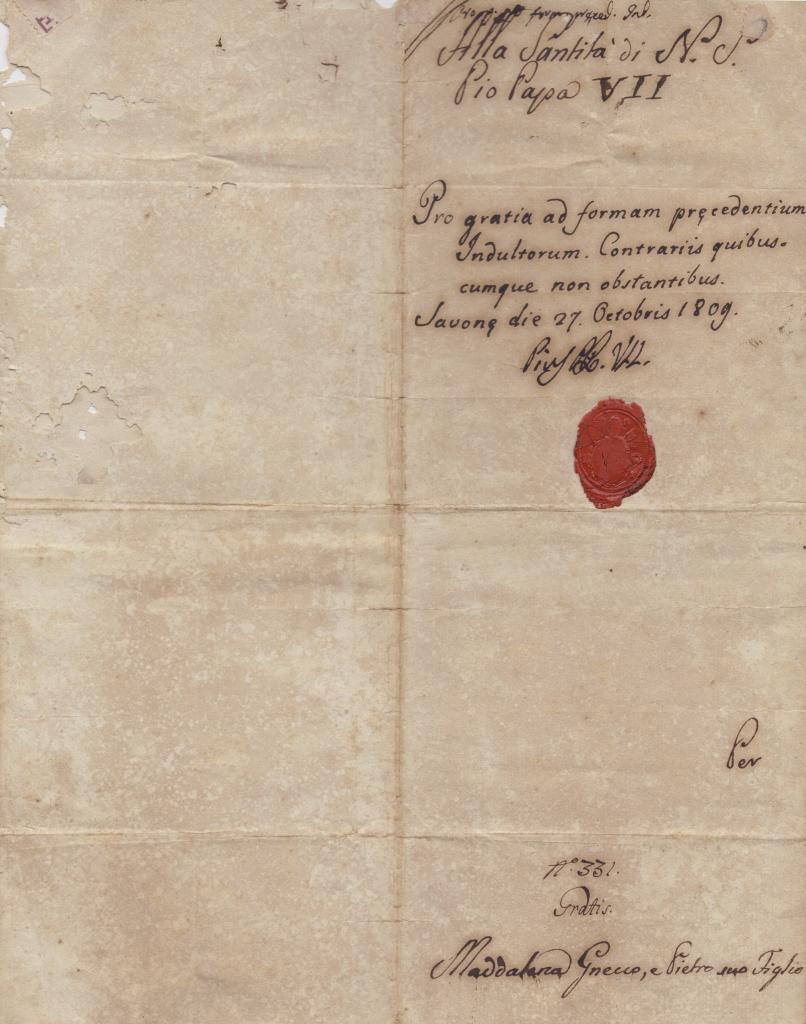 Alla Santità di N. S.
Pio Papa VII
Pro gratia ad formam pręcedentium
Indultorum. Contrariis quibus-
cumque non obstantibus.
Savonę die 27. Octobris 1809.
Pius PP. VII.
Per
N.° 331.
Gratis.
Maddalena Gnecco, e Pietro suo Figlio